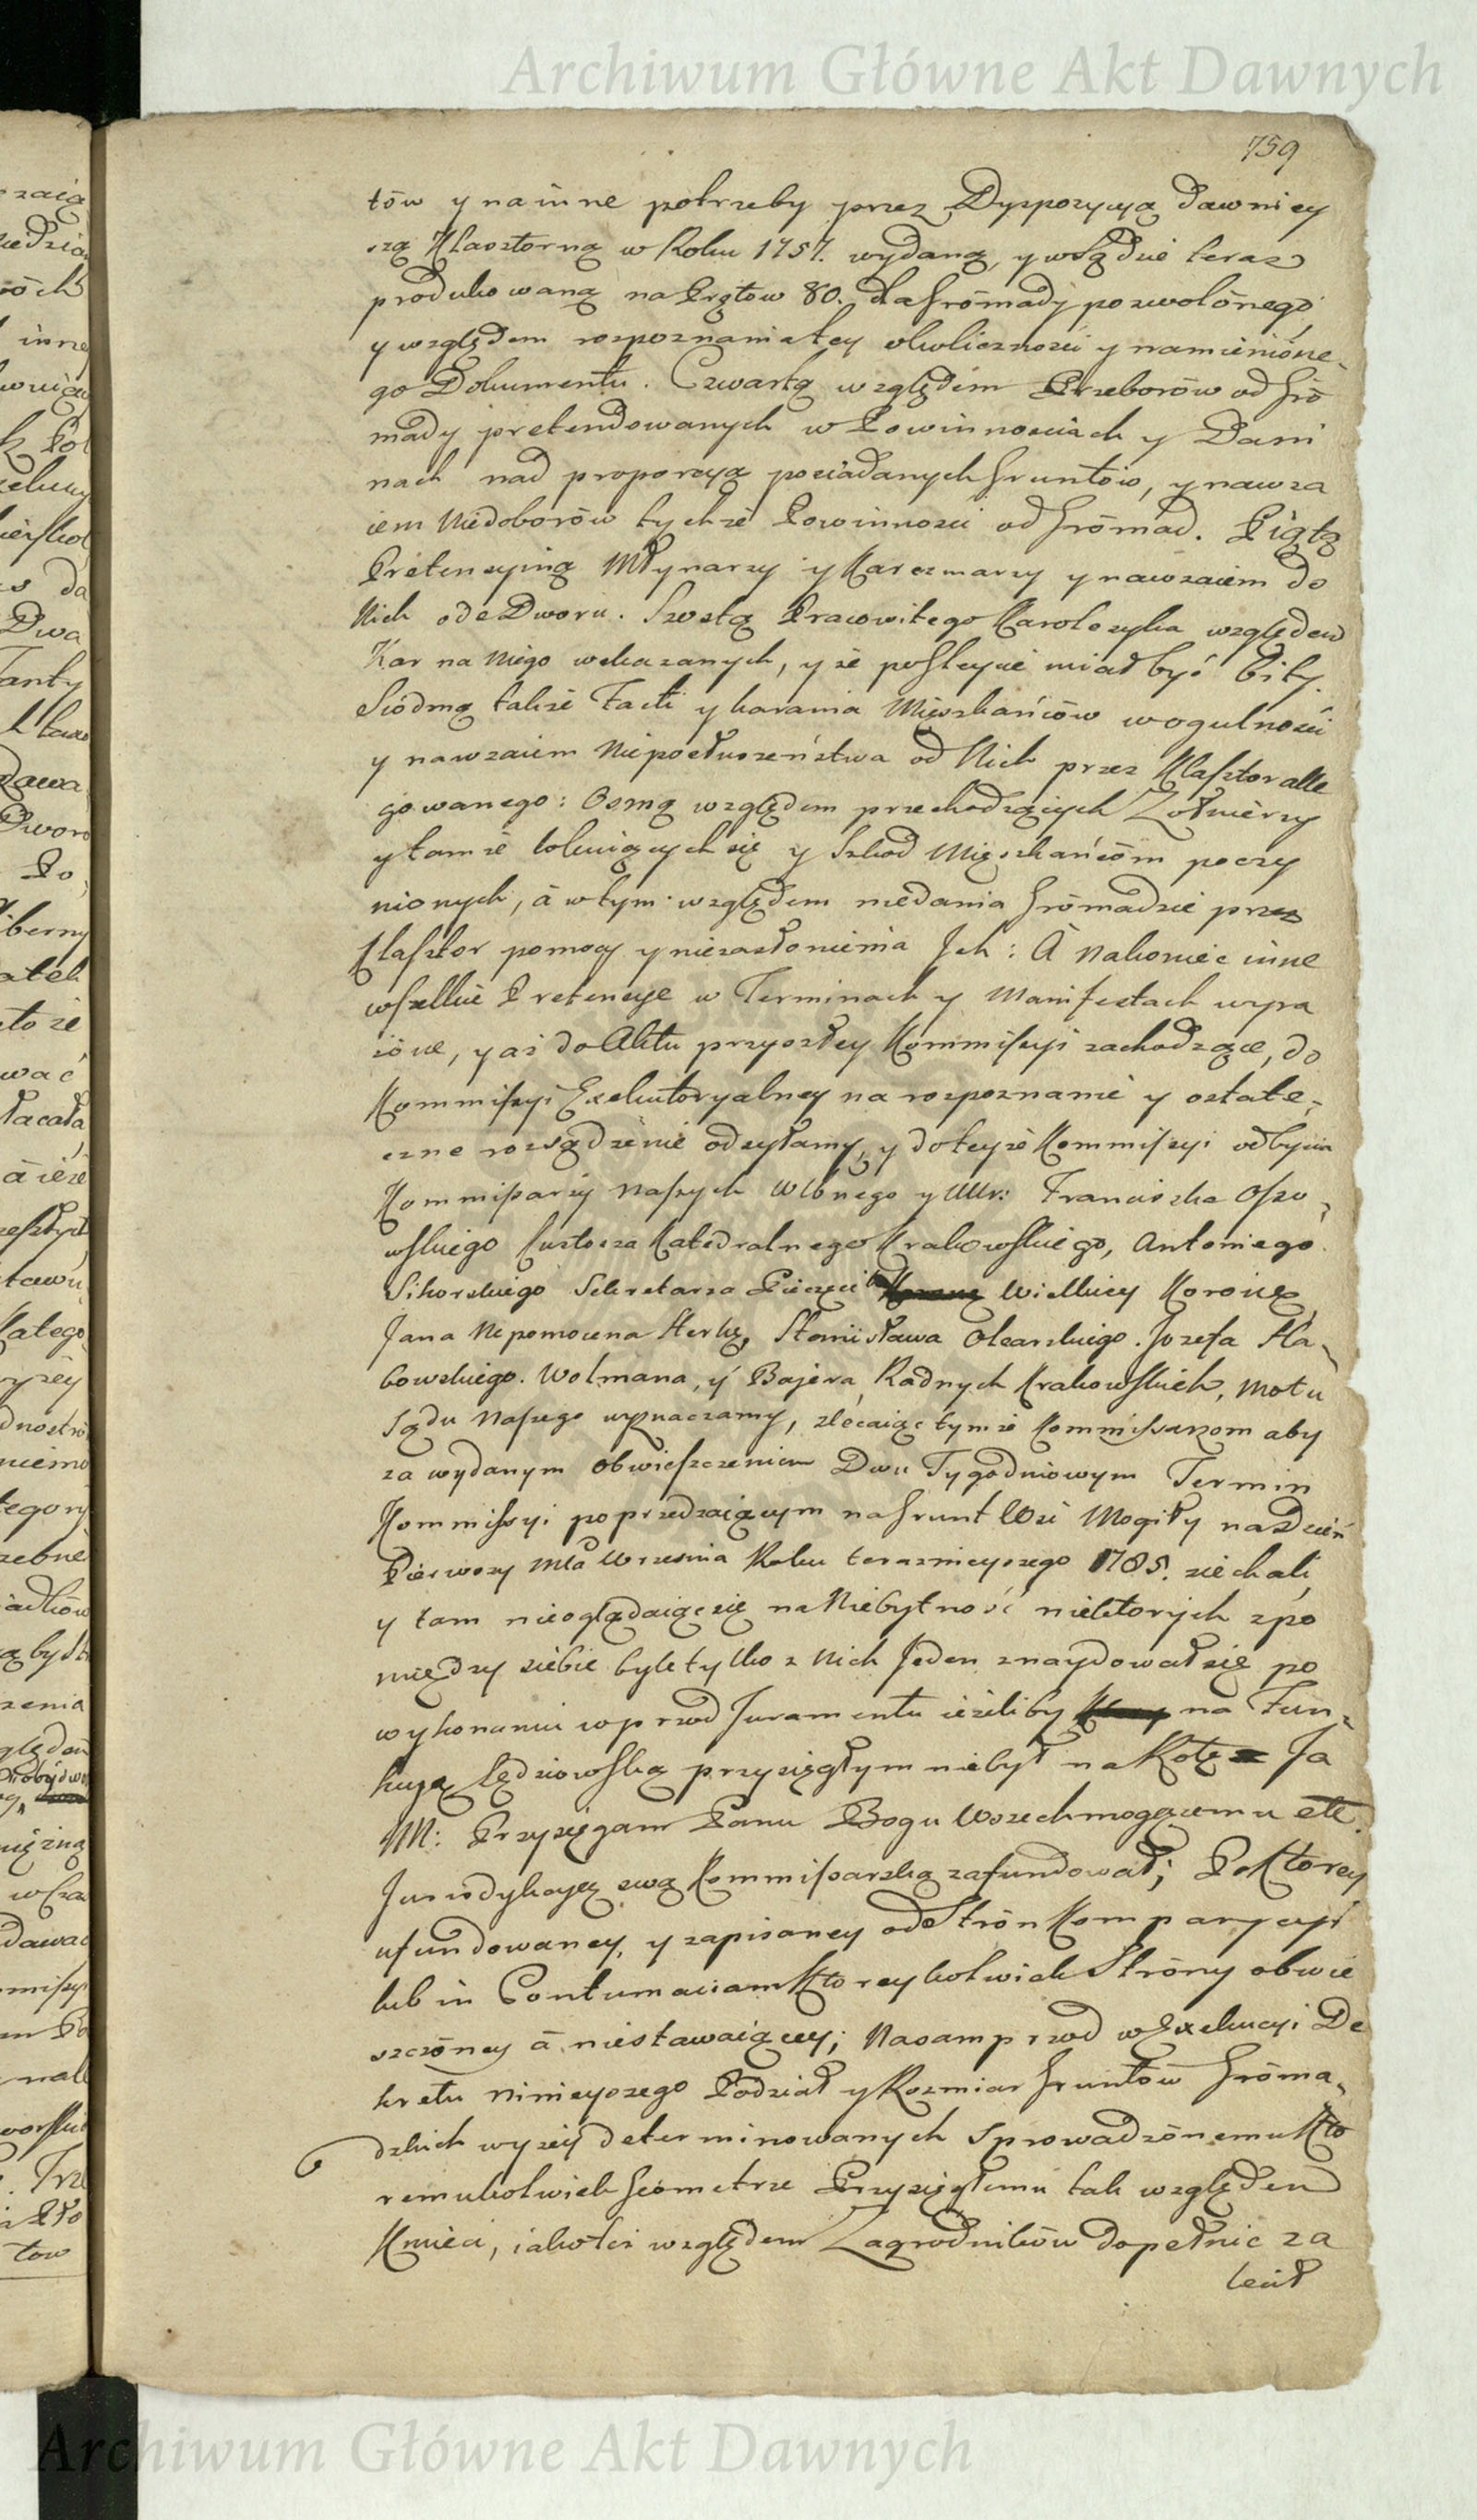 Archiwum Główne Akt Dawnych
759
tów y na inne potrzeby przez Dyspozycyą dawniey
szą Klasztorną w Roku 1757. wydaną, y w Sądzie teraz
produkowaną na Prętow 80. dla Grōmady pozwolōnego
y względem rozpoznania tey okoliczności y namieniōne
go Dokumentu. Czwartą względem Przeborōw od Grō
mady pretendowanych w Powinnościach y Dani
nach nad proporcyą posiadanych Gruntōw, y nawza
iem Niedoborōw tychże Powinności od Grōmad. Piątą
Pretensyiną Młynarzy y Karczmarzy y nawzaiem do
Nich ode Dworu. Szostą Pracowitego Karolczyka względem
Kar na Niego wskazanych, y że posleycie miał być bity.
Siōdmą także Taxli y karania Mięszkańcōw wogulności
y nawzaiem Nieposłuszeństwa od Nich przez Klasztor alle
gowanego: Osmą względem przechodzących Zołnierzy
y tamże lokuiących się y Szkod Mięszkańcōm poczy
nionych, á w tym względem niedania Grōmadzie przez
Klasztor pomocy y niezasłonienia Jch: A Nakoniec inne
wszelkie Pretensye w Terminach y Manifestach wyra
żōne, y aż do Aktu przyszłey Kommissyi zachodzące, do
Kommissyi Exekutoryalney na rozpoznanie y ostate-
czne rozsądzenie odsyłamy, y do teyże Kommissyi odbycia
Kommissarzy Naszych Wlbnego y UUr: Franciszka Oszo-
wskiego Kustosza Katedralnego Krakowskiego, Antoniego
Sikorskiego Sekretarza Pieczęci Wielkiey Koronney
Jana Nepomocena Sterkę, Stanisława Olearskiego. Jozefa Sła-
bowskiego. Wolmana, y Bajera Radnych Krakowskich, Motu
Sądu Naszego wyznaczamy, zlecaiąc tymże Kommissarzom aby
za wydanym obwieszczeniem Dwu Tygodniowym Termin
Kommissyi poprzedzaiącym na Grunt Wsi Mogiły na Dzień
Pierwszy Mca Wrzesnia Roku terazniejszego 1785. ziechali,
y tam nieoglądaiąc się na Niebytność niektorych zpo
między siebie byle tylko z Nich Jeden znaydował się po
wykonaniu wprzod Juramentu ieżeliby na Fun-
kcyą Sędziowską przysięgłym niebył na Rotę Ja
N: Przysięgam Panu Bogu Wszechmogącemu etc.
Jurisdykcyą swą Kommissarską zafundował; Po Ktorey
ufundowaney, y zapisaney ode Strōn Komparycyi
lub in Contumaciam Ktoreykolwiek Strōny obwie
szczōney á niestawaiącey; Nasamprzod w Exekucyi De
kretu Ninieyszego Podział y Rozmiar Gruntōw Grōma-
dzkich wyżey determinowanych Sprowadzōnemu Kto
remukolwiek Geometrze Przysięgłemu tak względem
Kmieci, iakoteż względem Zagrodnikōw dopełnic za
lecił
Archiwum Główne Akt Dawnych